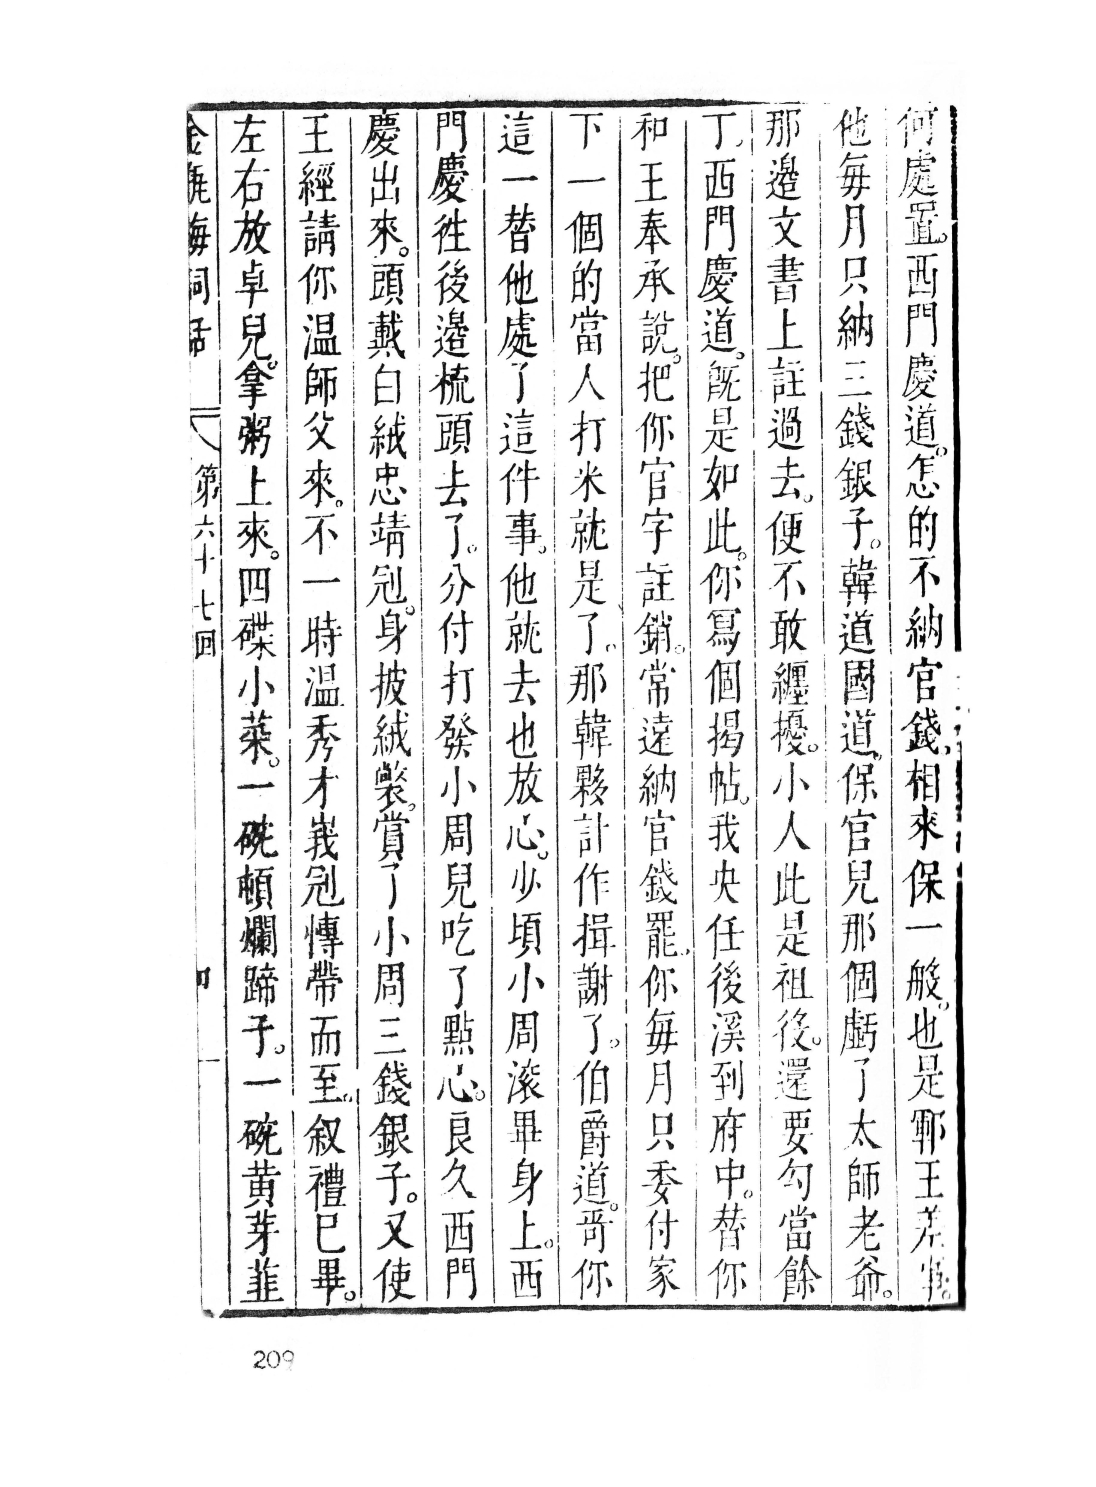 何處置。西門慶道。怎的不納官錢。相來保一般。也是鄆王差事。
他每月只納三錢銀子。韓道國道。保官兒那個虧了太師老爺。
那邊文書上註過去。便不敢纏擾。小人此是祖役。還要勾當餘
丁。西門慶道。既是如此。你寫個揭帖。我央任後溪到府中。替你
和王奉承說。把你官字註銷。常遠納官錢罷。你每月只委付家
下一個的當人打米就是了。那韓夥計作揖謝了。伯爵道。哥你
這一替他處了這件事。他就去也放心。少頃小周滚畢身上。西
門慶徃後邊梳頭去了。分付打發小周兒吃了點心。良久西門
慶出來。頭戴白絨忠靖冠。身披絨氅。賞了小周三錢銀子。又使
王經請你温師父來。不一時温秀才峩冠博帶而至。叙禮已畢。
左右放卓兒。拿粥上來。四碟小菜。一碗頓爛蹄子。一碗黄芽韮
金瓶梅詞話 第六十七回 四
209